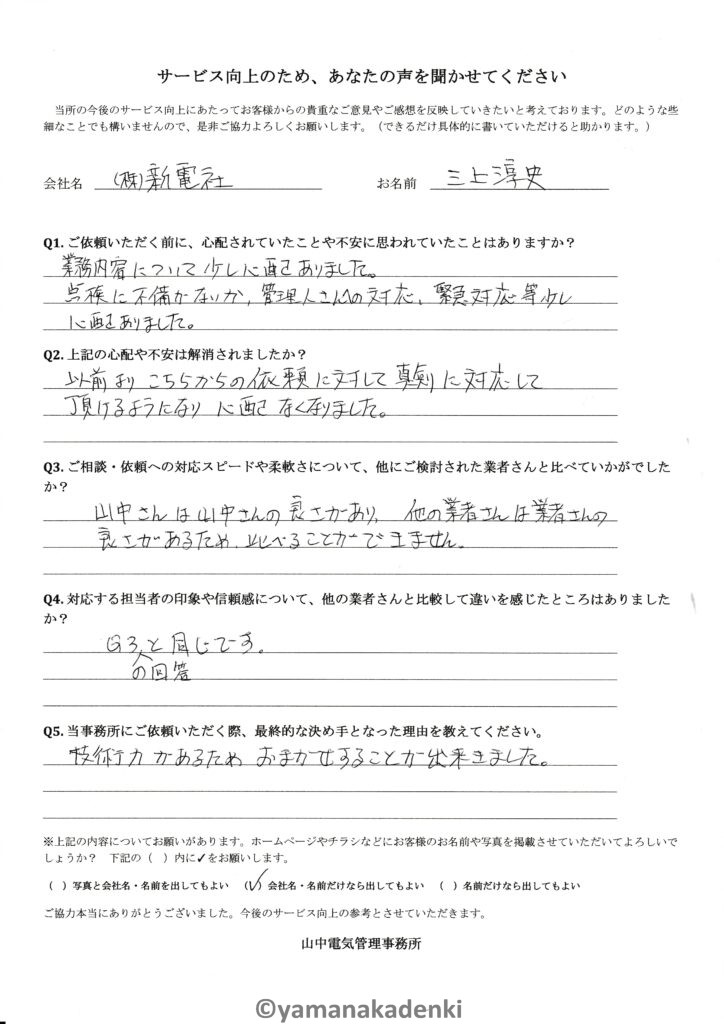 サービス向上のため、あなたの声を聞かせてください
当所の今後のサービス向上にあたってお客様からの貴重なご意見やご感想を反映していきたいと考えております。どのような些
細なことでも構いませんので、是非ご協力よろしくお願いします。（できるだけ具体的に書いていただけると助かります。）
会社名 (株)新電社 お名前 三上淳史
Q1. ご依頼いただく前に、心配されていたことや不安に思われていたことはありますか？
業務内容について少し心配がありました。
点検に不備がないか、管理人さんへの対応、緊急対応等少し
心配がありました。
Q2. 上記の心配や不安は解消されましたか？
以前より こちらからの依頼に対して真剣に対応して
頂けるようになり 心配も なくなりました。
Q3. ご相談・依頼への対応スピードや柔軟さについて、他にご検討された業者さんと比べていかがでした
か？
山中さんは山中さんの良さがあり、他の業者さんは業者さんの
良さがあるため、比べることができません。
Q4. 対応する担当者の印象や信頼感について、他の業者さんと比較して違いを感じたところはありました
か？
Q3 と同じです。
の回答
Q5. 当事務所にご依頼いただく際、最終的な決め手となった理由を教えてください。
技術力があるため おまかせすることが出来きました。
※上記の内容についてお願いがあります。ホームページやチラシなどにお客様のお名前や写真を掲載させていただいてよろしいで
しょうか？ 下記の（ ）内に✓をお願いします。
（ ）写真と会社名・名前を出してもよい （✓）会社名・名前だけなら出してもよい （ ）名前だけなら出してもよい
ご協力本当にありがとうございました。今後のサービス向上の参考とさせていただきます。
山中電気管理事務所
©yamanakadenki